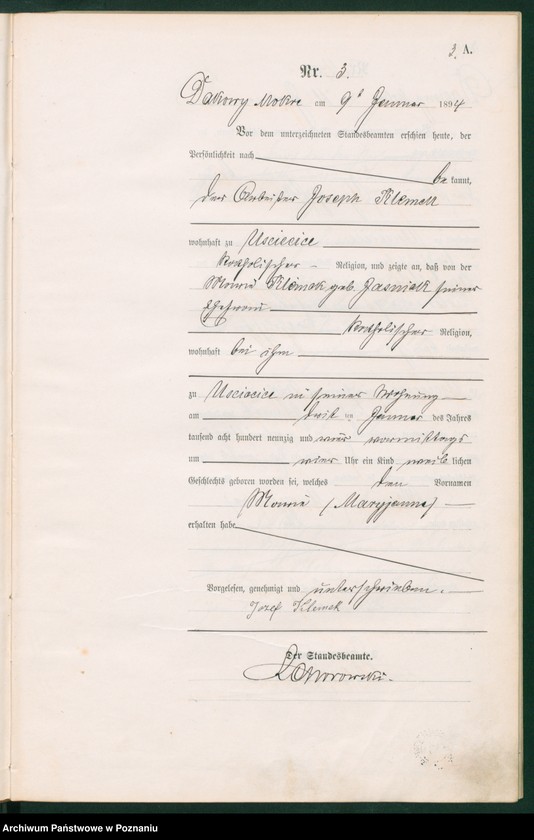 3. A.
Nr. 3.
Dakowy Mokre am 9ᵗ Januar 1894
Vor dem unterzeichneten Standesbeamten erschien heute, der
Persönlichkeit nach
be kannt,
der Arbeiter Joseph Klemak
wohnhaft zu Uscięcice
katholischer Religion, und zeigte an, daß von der
Marie Klemak geb. Jasniak seiner
Ehefrau
katholischer Religion,
wohnhaft bei ihm
zu Uscięcice in seiner Wohnung
am drit ten Januar des Jahres
tausend acht hundert neunzig und vier vormittags
um vier Uhr ein Kind weib lichen
Geschlechts geboren worden sei, welches den Vornamen
Marie (Maryjanna)
erhalten habe
Vorgelesen, genehmigt und unterschrieben.
Jozef Klemak
Der Standesbeamte.
Archiwum Państwowe w Poznaniu